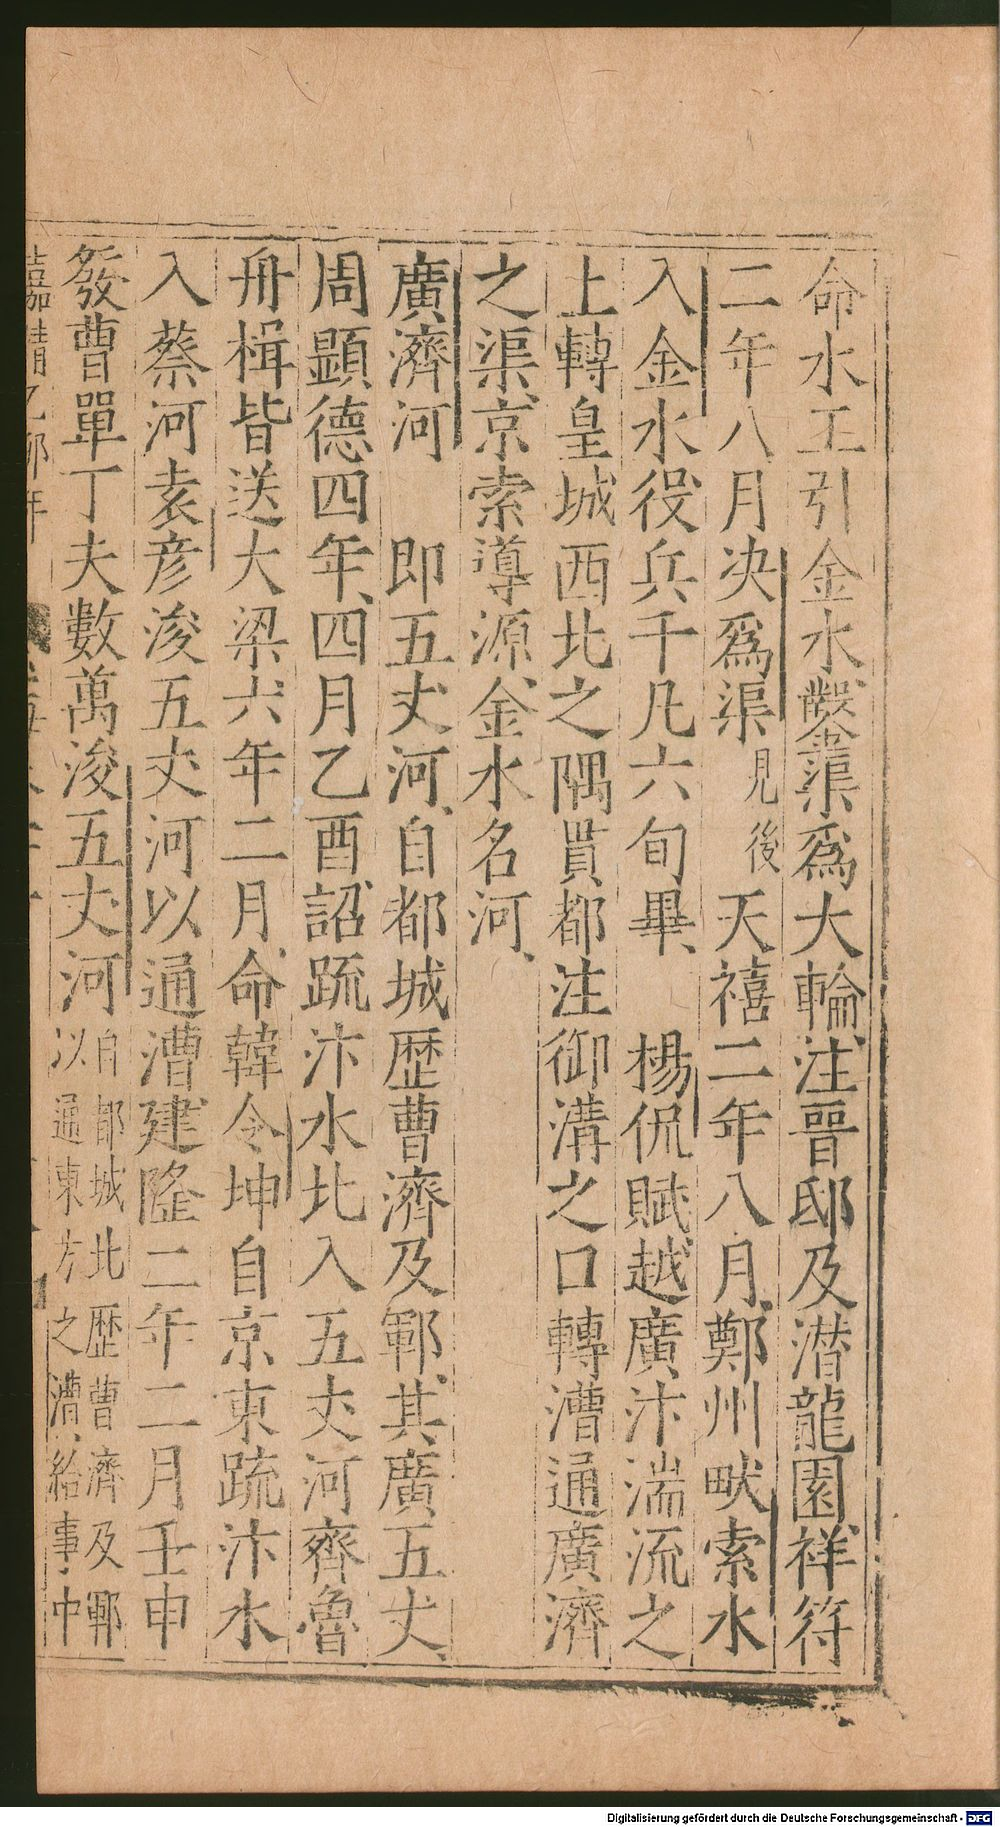 命水工引金水鑿渠爲大輪注晉邸及潜龍園祥符
二年八月决爲渠見後天禧二年八月鄭州畎索水
入金水役兵千凡六旬畢　楊侃賦越廣汴湍流之
上轉皇城西北之隅貫都注御溝之口轉漕通廣濟
之渠京索導源金水名河
廣濟河　即五丈河自都城歷曹濟及鄆其廣五丈
周顯德四年四月乙酉詔疏汴水北入五丈河齊魯
舟楫皆送大梁六年二月命韓令坤自京東疏汴水
入蔡河袁彦浚五丈河以通漕建隆二年二月壬申
發曹單丁夫數萬浚五丈河
自都城北歷曹濟及鄆
以通東方之漕給事中
Digitalisierung gefördert durch die Deutsche Forschungsgemeinschaft - DFG